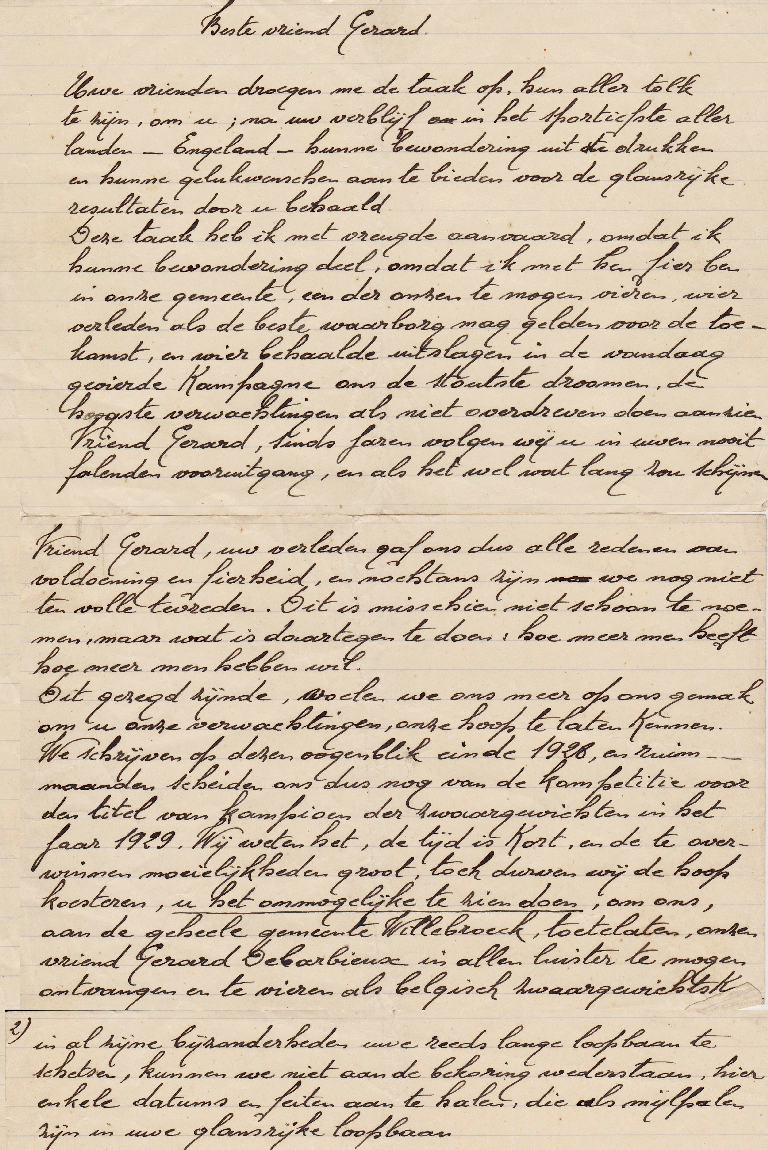 Beste vriend Gerard.
Uwe vrienden droegen me de taak op, hun aller tolk
te zijn, om u ; na uw verblijf in het sportiefste aller
landen – Engeland – hunne bewondering uit te drukken
en hunne gelukwenschen aan te bieden voor de glansrijke
resultaten door u behaald
Deze taak heb ik met vreugde aanvaard, omdat ik
hunne bewondering deel, omdat ik met hen fier ben
in onze gemeente, een der onzen te mogen vieren, wier
verleden als de beste waarborg mag gelden voor de toe-
komst, en wier behaalde uitslagen in de vandaag
gevierde Kampagne ons de stoutste droomen, de
hoogste verwachtingen als niet overdreven doen aanzien
Vriend Gerard, sinds jaren volgen wij u in uwen nooit
falenden vooruitgang, en als het wel wat lang zou schijnen
Vriend Gerard, uw verleden gaf ons dus alle redenen van
voldoening en fierheid, en nochtans zijn we nog niet
ten volle tevreden. Dit is misschien niet schoon te noe-
men, maar wat is daartegen te doen : hoe meer men heeft
hoe meer men hebben wil.
Dit gezegd zijnde, voelen we ons meer op ons gemak
om u onze verwachtingen, onze hoop te laten Kennen.
We schrijven op dezen oogenblik einde 1928, en ruim --
maanden scheiden ons dus nog van de kompetitie voor
den titel van kampioen der zwaargewichten in het
jaar 1929. Wij weten het, de tijd is Kort, en de te over-
winnen moeielijkheden groot, toch durven wij de hoop
koesteren, u het onmogelijke te zien doen, om ons,
aan de geheele gemeente Willebroeck, toetelaten, onzen
vriend Gerard Debarbieux in allen luister te mogen
ontvangen en te vieren als belgisch zwaargewichtsK
2) in al zijne bijzonderheden uwe reeds lange loopbaan te
schetsen, kunnen we niet aan de bekoring wederstaan, hier
enkele datums en feiten aan te halen, die als mijlpalen
zijn in uwe glansrijke loopbaan